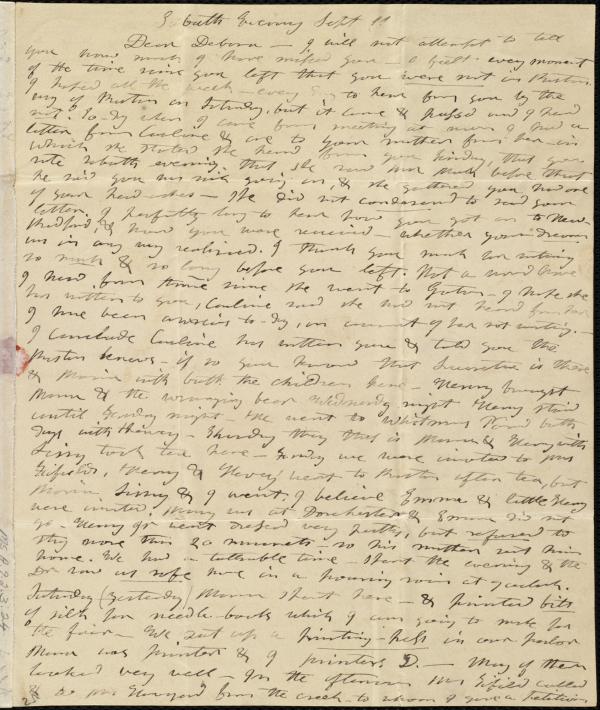 Sabath Evening Sept 11
Dear Debora - I will not attempt to tell
you how much I have missed you - I felt every moment
of the time since you left that you were not in Boston
I hoped all the week - every day to hear from you by the
way of Boston on Saturday, but it came & passed and I heard
not. To-day when I came from meeting at noon I had a
letter from Caroline & one to your mother from her - in
which she stated she heard from you Friday, that you
of your head-aches - She did not condescend to send your
letter. I perfectly long to hear how you got on to New-
Bedford, & how you were received - whether your dream
was in any way realized. I thank you much for writing
so much & so long before you left. Not a word have
I heard from Anne since she went to Groton - I hope she
has written to you, Caroline said she had not heard from her
I have been anxious to-day, on account of her not writing. -
I conclude Caroline has written you & told you the
Boston news - if so you know that Lucretia is there
& Maria with both the children here - Henry brought
Maria & the Wednesday night Henry staid
until Friday night - He went to Whitmans Pond both
days with Harvey - Thursday they that is Maria & Henry with
Lizzy took tea here - Friday we were invited to Mrs
Fifields, Henry & Hervey went to Boston after tea, but
Maria, Lizzy & I went. I believe Emma & little Henry
were invited. Mary was at Dorchester & Emma did not
go - Henry Gr went dressed very pretty, but refused to
stay more than 20 minutes - so his mother sent him
home. We had a tolerable time - spent the evening & the
Dr saw us safe home in a pouring rain at 9 oclock.
Saturday (yesterday) Maria spent here - & printed bits
of silk for needle-books which I am going to make for
the fair - We set up a printing-press in our parlor
Maria was printer & I printers D. - Many of them
looked very well - In the afternoon Mrs Fifield called
& so Mrs from the creek - to whom I gave a petition